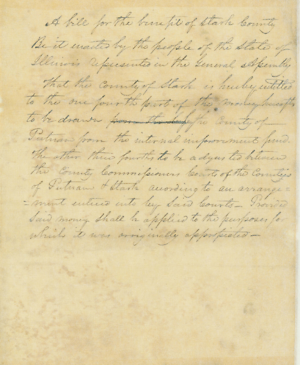 A bill for the benefit of Stark County
Be it enacted by the people of the State of
Illinois represented in the General Assembly
That the County of Stark is hereby entitled
to the one fourth part of the money
to be drawn by the County of
Putnam from the internal improvement fund
The other three fourths to be adjusted between
the County Commissioners Courts of the Counties
of Putnam & Stark according to an arrange-
-ment entered into by said Courts - Provided
said money shall be applied to the purposes for
which it was originally appropriated -